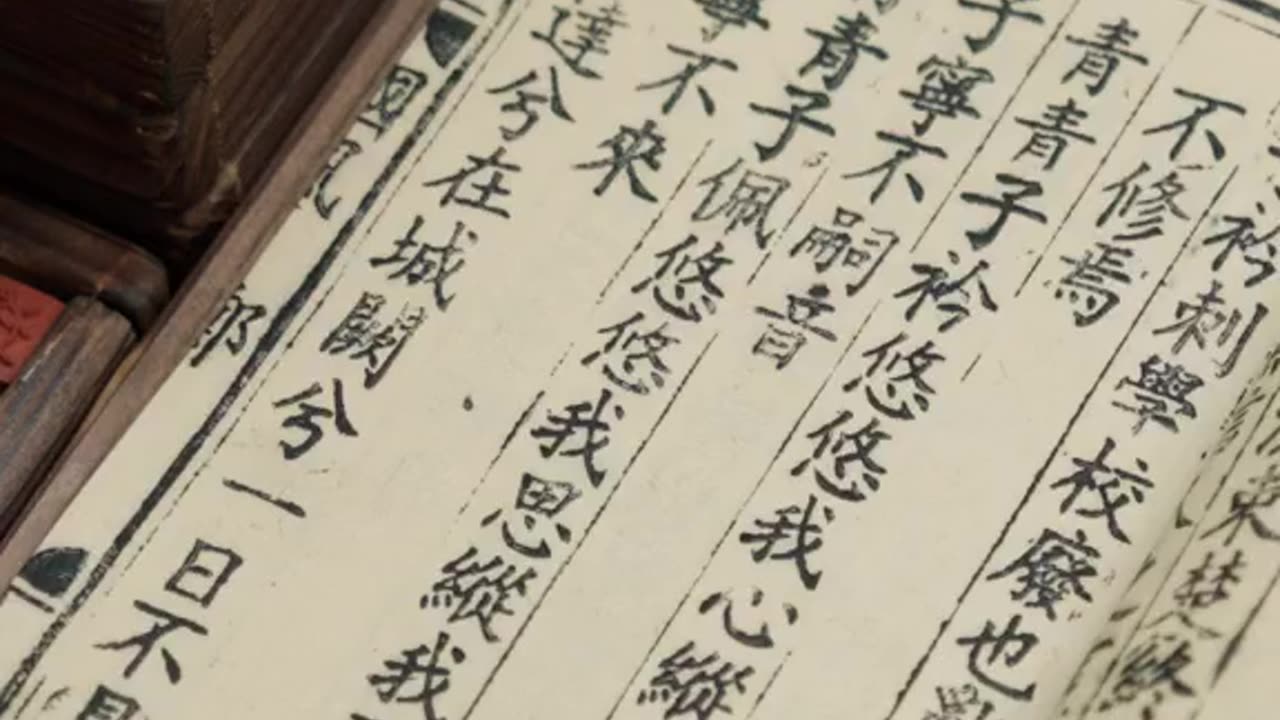 衿刺學校廢也
不修焉
青青子衿悠悠我心縱
子寧不嗣音
青子佩悠悠我思縱我
寧不來
達兮在城闕兮一日不見
國風